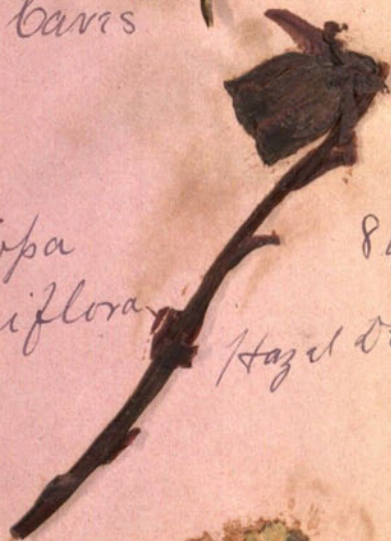 Caves
opa
iflora
8
Hazel D